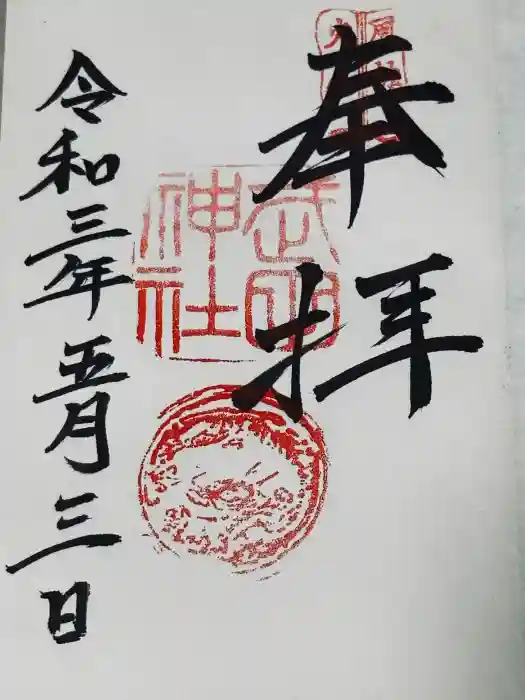 奉拝
神社
令和三年五月三日